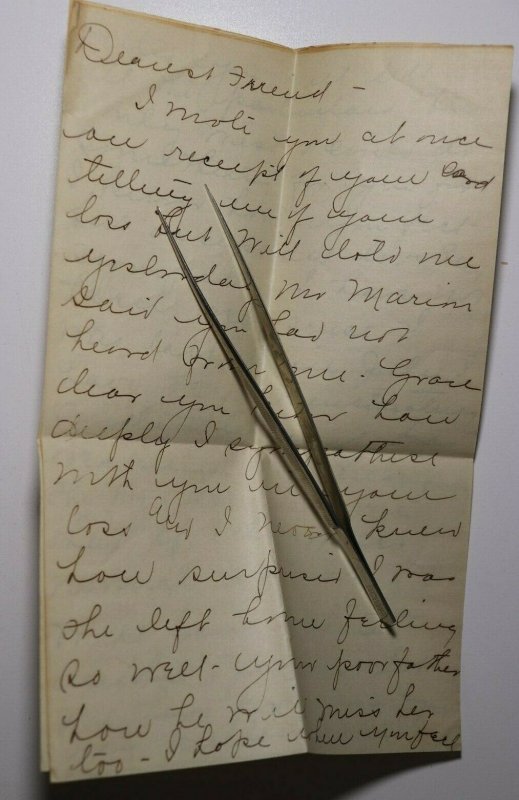 Dearest Friend -
I wrote you at once
on receipt of your card
telling me of your
loss but Will told me
yesterday Mr Marion
said you had not
heard from me. Grace
dear you know how
deeply I sympathise
with you in your
loss and I never knew
how surprised I was
she left home feeling
so well - your poor father
how he will miss her
too - I hope you yourself